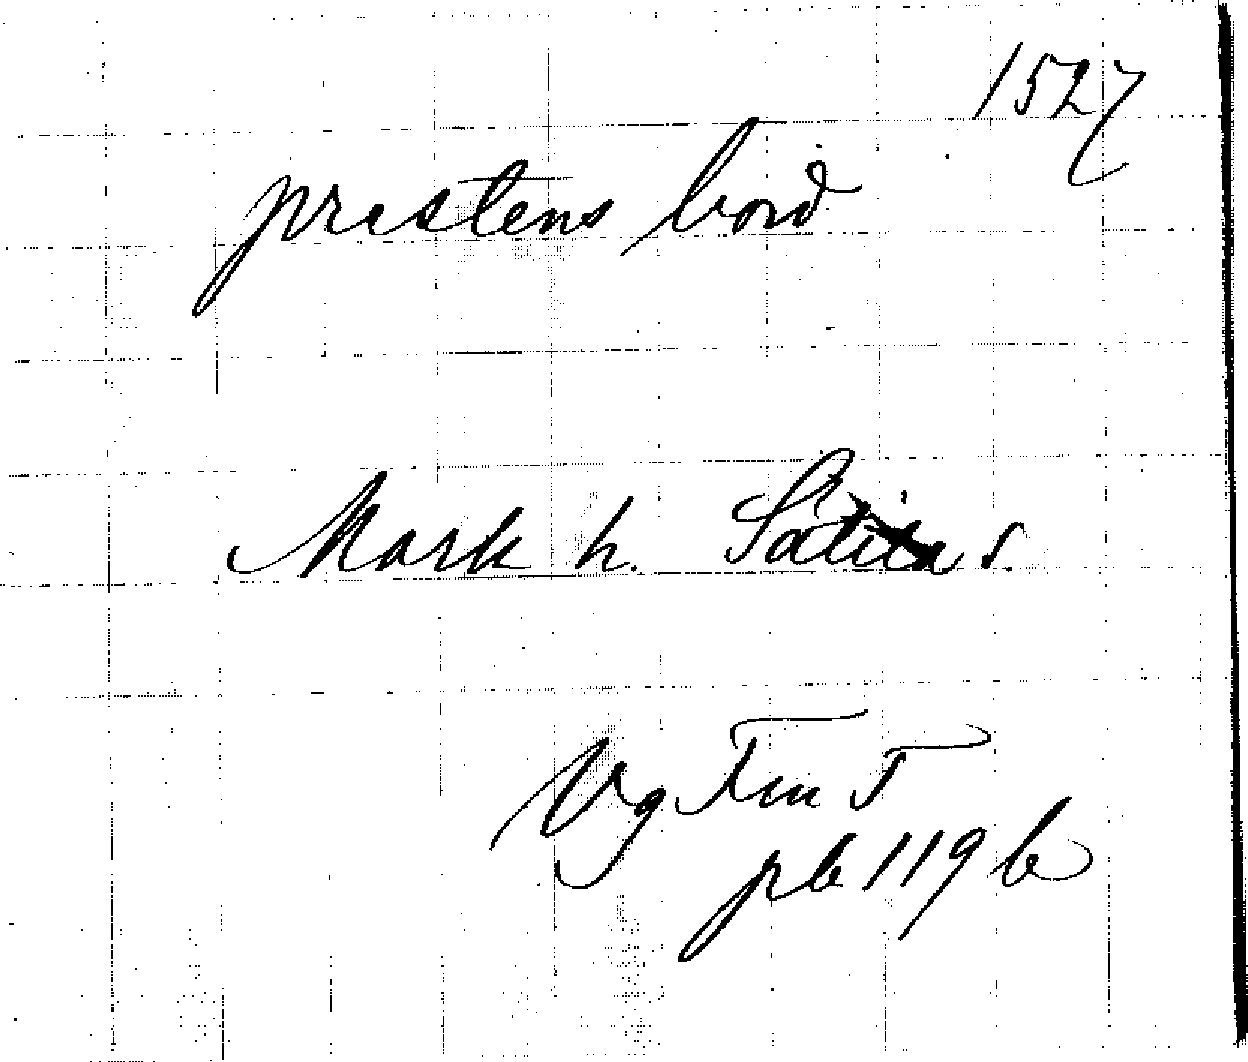 1527
prestens bord
Mark h. Sätila s.
Vg Fm T
pb 119 b